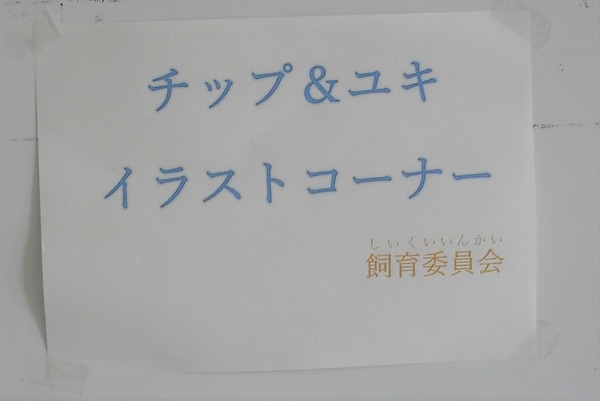 チップ＆ユキ
イラストコーナー
しいくいいんかい
飼育委員会